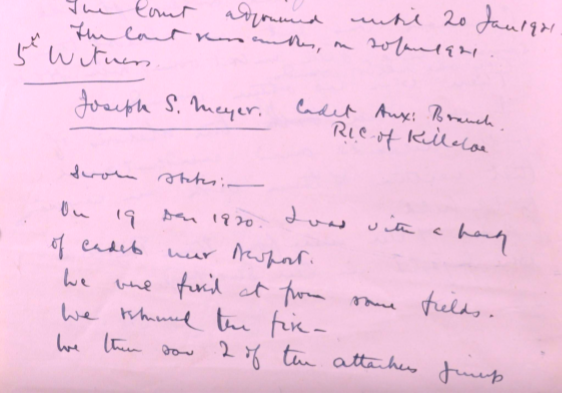 The Court adjourned until 20 Jan 1921.
The Court reassembles, on 20 Jan 1921.
5th Witness
Joseph S. Meyer. Cadet Aux: Branch.
R.I.C of Killaloe
Sworn states:—
On 19 1920. I was with a party
of cadets near Newport.
We were fired at from some fields.
We returned the fire—
We then saw 2 of the attackers jump